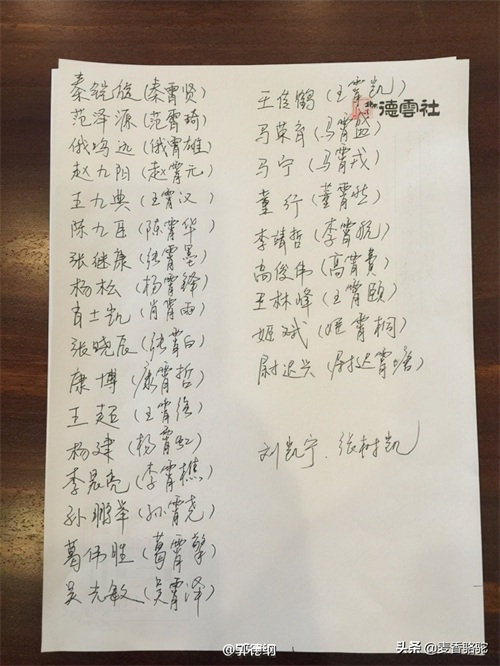 秦铠俊(秦霄贤)
范泽源(范霄琦)
俄鸣远(俄霄雄)
赵九阳(赵霄元)
王九典(王霄汉)
陈九臣(陈霄华)
张继康(张霄墨)
杨松(杨霄绎)
肖士凯(肖霄雨)
张晓辰(张霄白)
康博(康霄哲)
王超(王霄徐)
杨建(杨霄虹)
李昙亮(李霄樵)
孙鹏举(孙霄尧)
葛伟胜(葛霄擎)
吴克敏(吴霄泽)
德雲社
王佳鹤(王霄凯)
马荣齐(马霄盛)
马宁(马霄戎)
董行(董霄然)
李靖哲(李霄航)
高俊伟(高霄贵)
王林峰(王霄颐)
姬斌(姬霄桐)
尉迟兴(尉迟霄培)
刘凯宁、张树凯
@郭德纲
头条@麦香骆驼